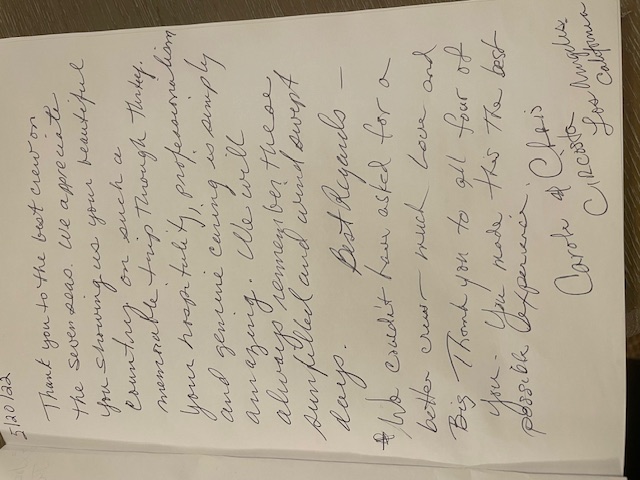 5/20/22
Thank you to the best crew on
the seven seas. We appreciate
you showing us your beautiful
country on such a
memorable trip through Turkey.
Your hospitality, professionalism
and genuine caring is simply
amazing. We will
always remember these
sunfilled and wind swept
days. Best Regards –
* We couldn't have asked for a
better crew – much Love and
Big Thank you to all four of
you. You made this the best
possible experience.
Carole & Chris
Circosta
Los Angeles
California